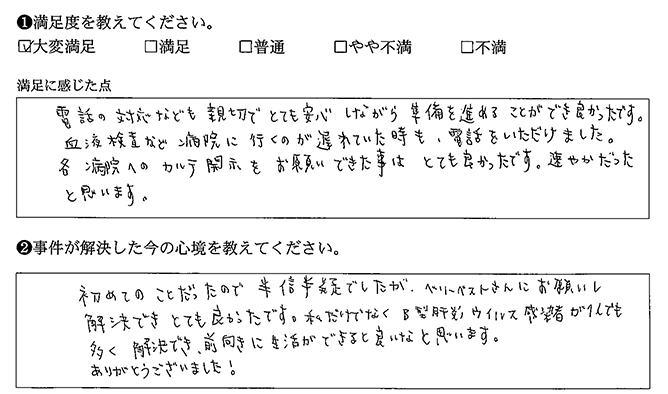 ❶満足度を教えてください。
☑大変満足 □満足 □普通 □やや不満 □不満
満足に感じた点
電話の対応なども親切でとても安心しながら準備を進めることができ良かったです。
血液検査など病院に行くのが遅れていた時も、電話をいただけました。
各病院へのカルテ開示をお願いできた事はとても良かったです。速やかだった
と思います。
❷事件が解決した今の心境を教えてください。
初めてのことだったので半信半疑でしたが、ベリーベストさんにお願いし
解決できとても良かったです。私だけでなくB型肝炎ウイルス感染者が1人でも
多く解決でき、前向きに生活ができると良いなと思います。
ありがとうございました!